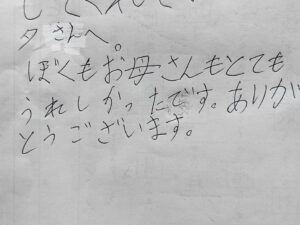 してくれて
夕さんへ。
ぼくもお母さんもとても
うれしかったです。ありが
とうございます。